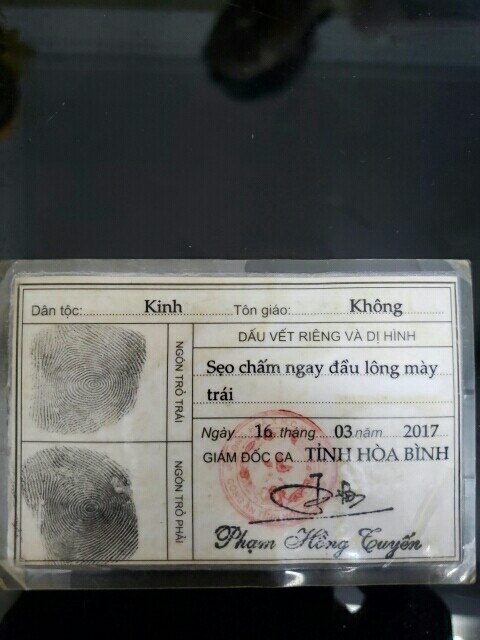 Dân tộc: Kinh Tôn giáo: Không
DẤU VẾT RIÊNG VÀ DỊ HÌNH
Sẹo chấm ngay đầu lông mày
trái
NGÓN TRỎ TRÁI
NGÓN TRỎ PHẢI
Ngày 16 tháng 03 năm 2017
GIÁM ĐỐC CA TỈNH HÒA BÌNH
Phạm Hồng Tuyến